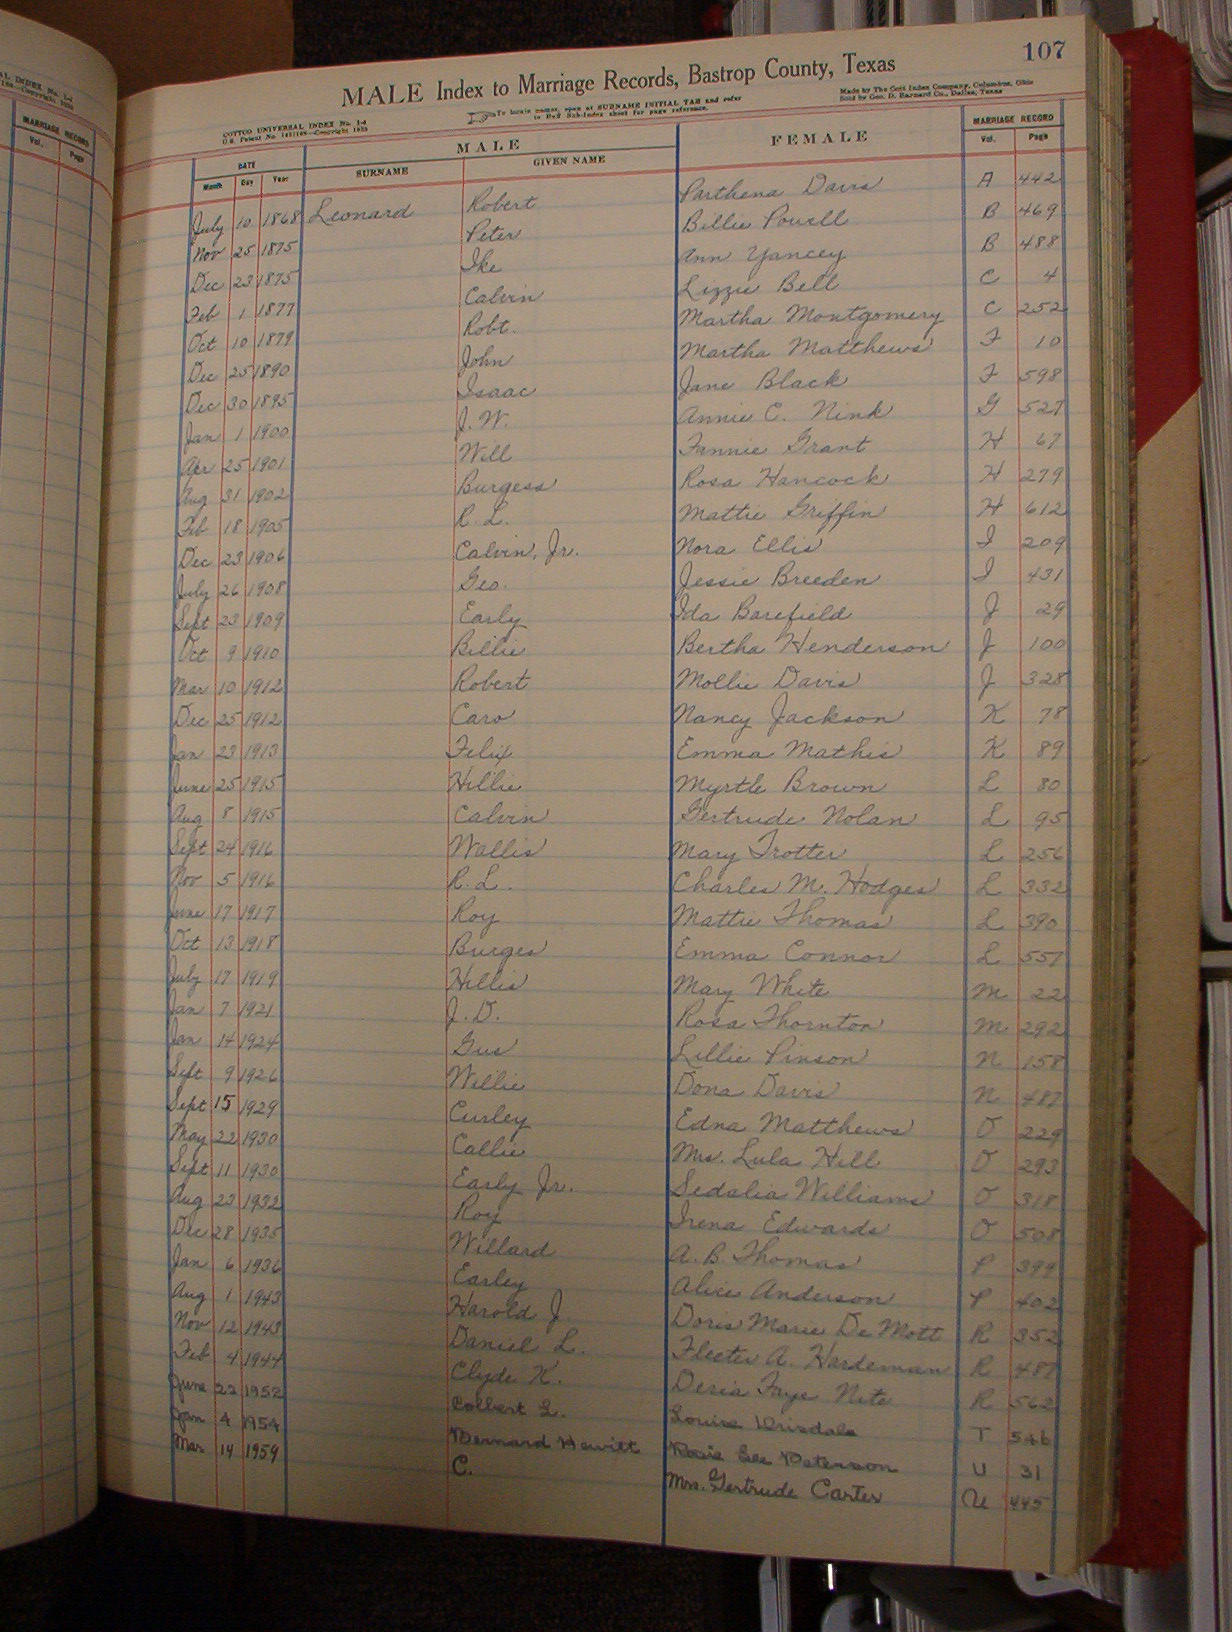 107
MALE Index to Marriage Records, Bastrop County, Texas
COTTCO UNIVERSAL INDEX No. 1-4
U.S. Patent No. 1411168—Copyright 1923
To locate names, open at SURNAME INITIAL TAB and refer
to Buff Sub-Index sheet for page reference.
Made by The Cott Index Company, Columbus, Ohio
Sold by Geo. D. Barnard Co., Dallas, Texas
MARRIAGE RECORD
Vol. Page
DATE MALE FEMALE MARRIAGE RECORD
Month Day Year SURNAME GIVEN NAME Vol. Page
July 10 1868 Leonard Robert Parthena Davis A 442
Nov 25 1875 Peter Billie Powell B 469
Dec 23 1875 Ike Ann Yancey B 488
Feb 1 1877 Calvin Lizzie Bell C 4
Oct 10 1879 Robt. Martha Montgomery C 252
Dec 25 1890 John Martha Matthews F 10
Dec 30 1895 Isaac Jane Black F 598
Jan 1 1900 J. W. Annie C. Nink G 527
Apr 25 1901 Will Fannie Grant H 67
Aug 31 1902 Burgess Rosa Hancock H 279
Feb 18 1905 R. L. Mattie Griffin H 612
Dec 23 1906 Calvin, Jr. Nora Ellis I 209
July 26 1908 Geo. Jessie Breeden I 431
Sept 23 1909 Early Ida Barefield J 29
Oct 9 1910 Billie Bertha Henderson J 100
Mar 10 1912 Robert Mollie Davis J 328
Dec 25 1912 Caro Nancy Jackson K 78
Jan 23 1913 Felix Emma Mathis K 89
June 25 1915 Hillie Myrtle Brown L 80
Aug 8 1915 Calvin Gertrude Nolan L 95
Sept 24 1916 Wallis Mary Trotter L 256
Nov 5 1916 R. L. Charles M. Hodges L 332
June 17 1917 Roy Mattie Thomas L 390
Oct 13 1918 Burges Emma Connor L 557
July 17 1919 Hillis Mary White M 22
Jan 7 1921 J. D. Rosa Thornton M 292
Jan 14 1924 Gus Lillie Pinson N 158
Sept 9 1926 Willie Dona Davis N 487
Sept 15 1929 Curley Edna Matthews O 229
May 22 1930 Callie Mrs. Lula Hill O 293
Sept 11 1930 Early Jr. Sedalia Williams O 318
Aug 23 1932 Roy Irena Edwards O 508
Dec 28 1935 Willard A. B. Thomas P 399
Jan 6 1936 Earley Alice Anderson P 402
Aug 1 1943 Harold J. Doris Marie De Mott R 352
Nov 12 1943 Daniel L. Fleeter A. Hardeman R 487
Feb 4 1944 Clyde K. Deria Faye Nite R 562
June 22 1952 Colbert L. Louise Drisdale T 546
Jan 4 1954 Bernard Hewitt Rosie Lee Peterson U 31
Mar 14 1959 C. Mrs. Gertrude Carter U 445